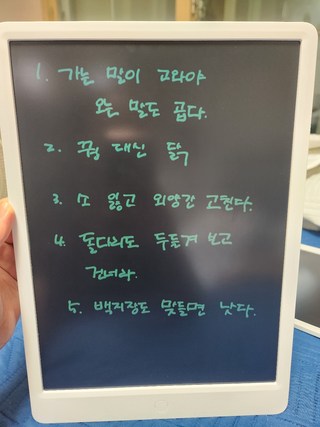 1. 가는 말이 고와야
오는 말도 곱다.
2. 꿩 대신 닭
3. 소 잃고 외양간 고친다.
4. 돌다리도 두들겨 보고
건너라.
5. 백지장도 맞들면 낫다.